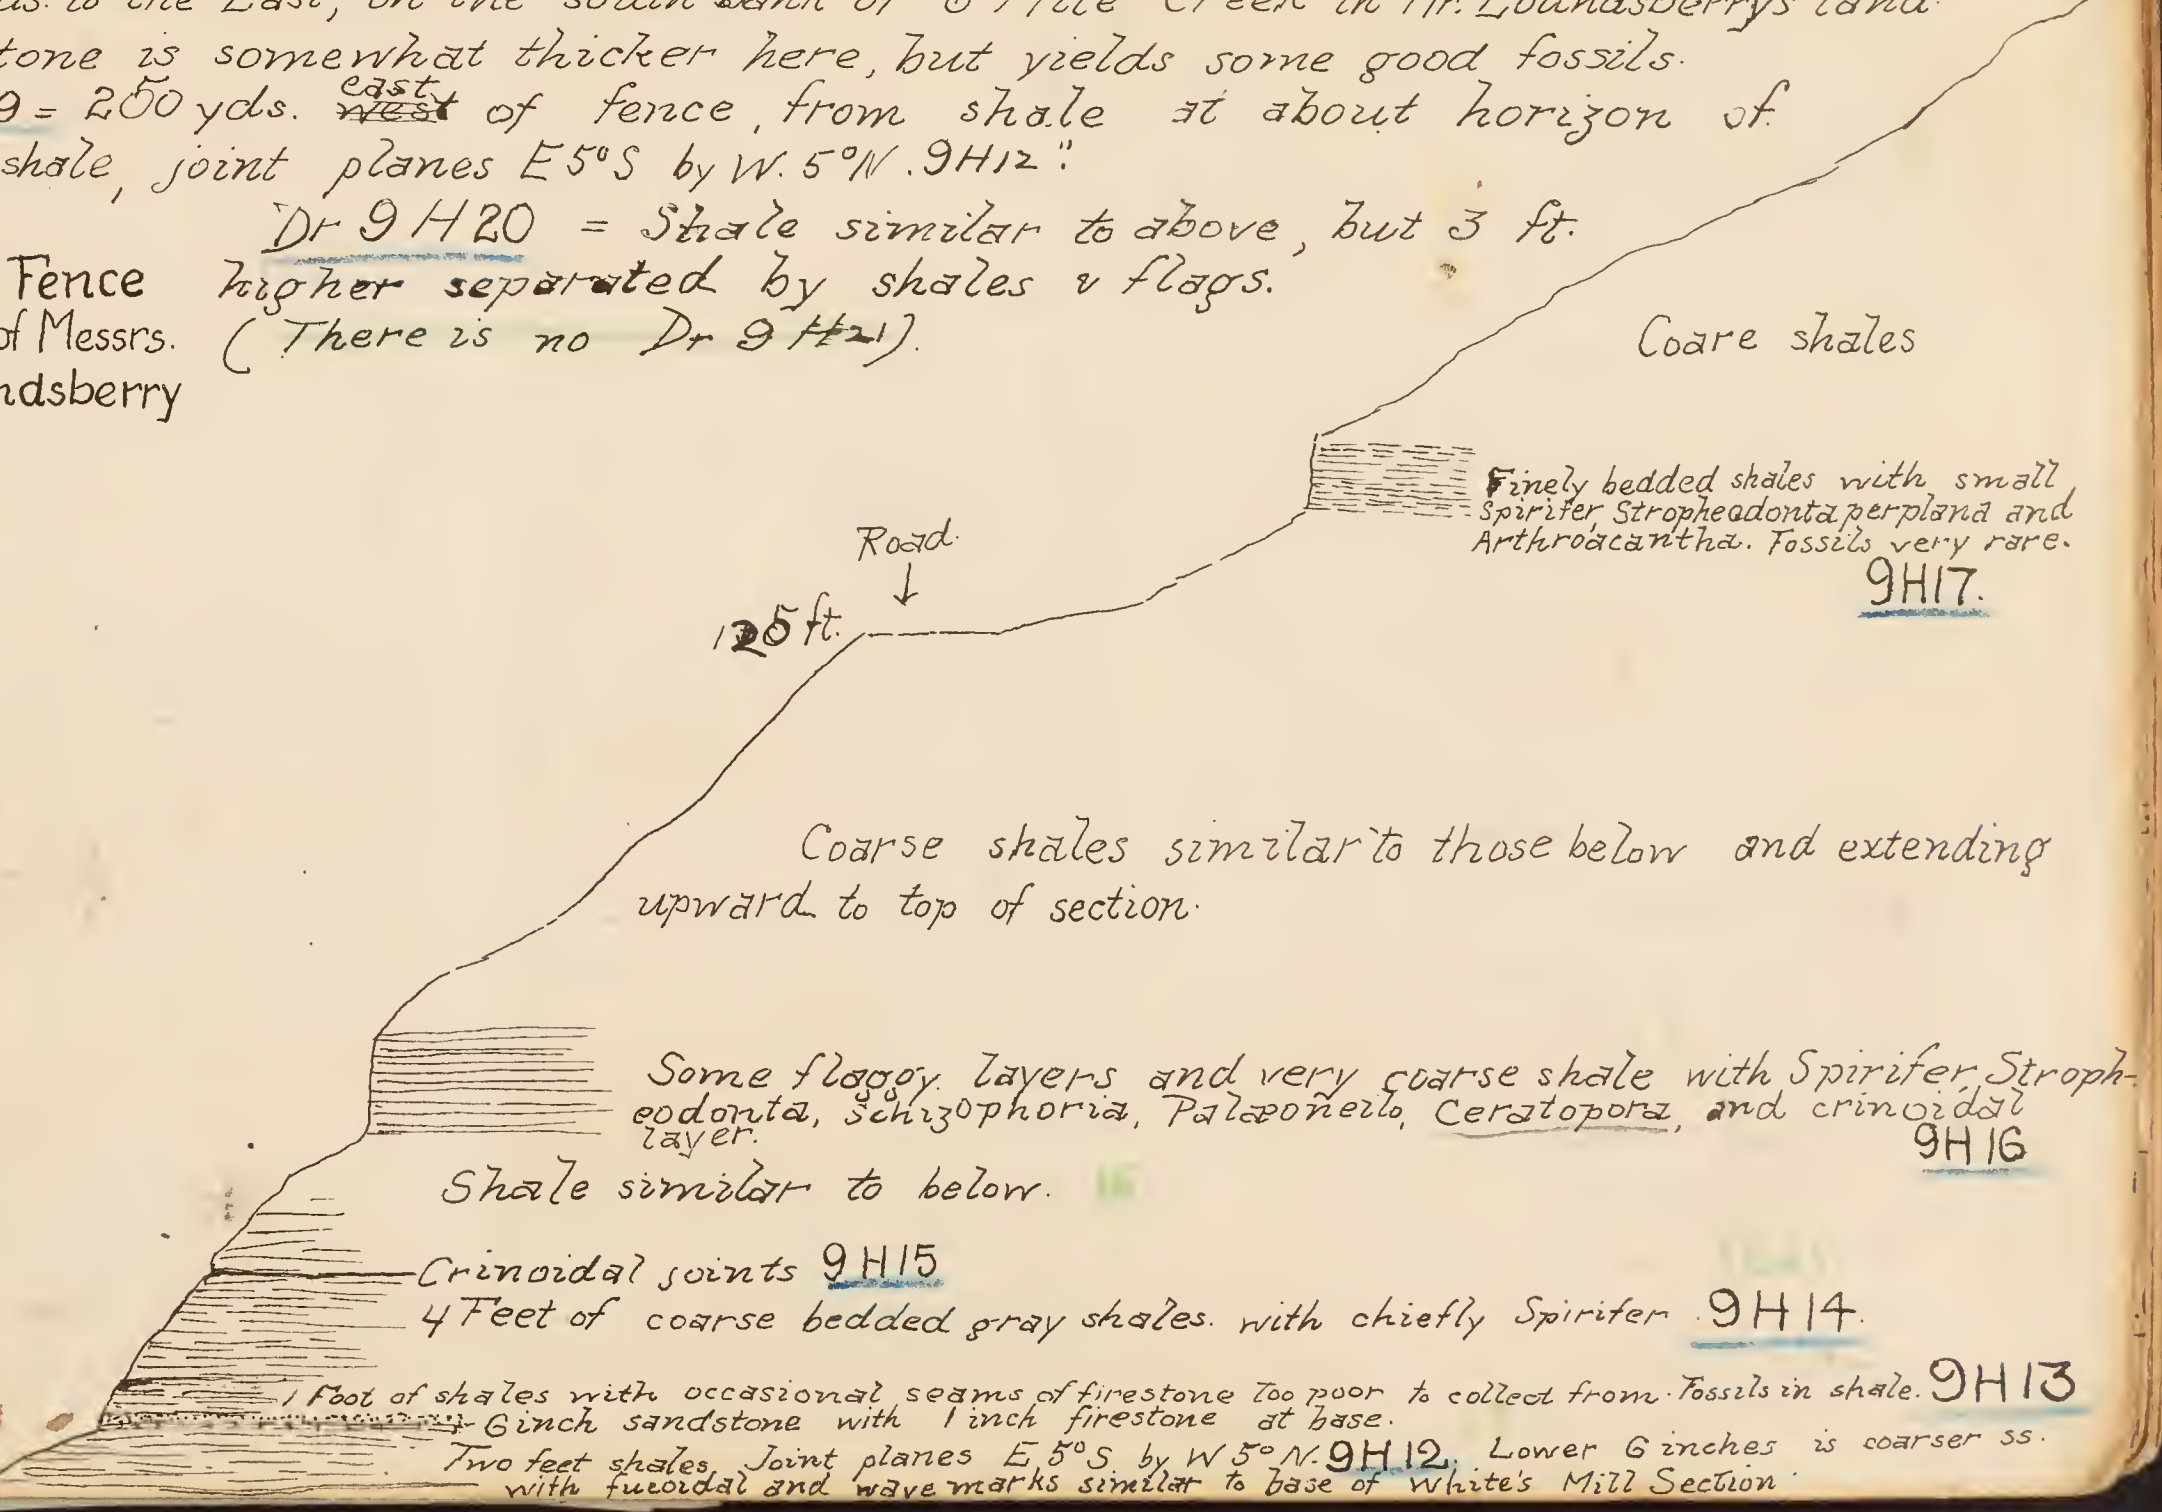 to the East, on the south bank of 6 Mile Creek in Mr. Loundsberrys land
tone is somewhat thicker here, but yields some good fossils.
9 = 250 yds. west east of fence, from shale at about horizon of
shale, joint planes E 5° S by W. 5° N. 9H12"
Dr 9 H20 = Shale similar to above, but 3 ft.
higher separated by shales & flags.
(There is no Dr 9 H21).
Fence
of Messrs.
ndsberry
Coare shales
Finely bedded shales with small
Spirifer, Stropheodonta perplana and
Arthroacantha. Fossils very rare.
9H17.
Road.
125 ft.
Coarse shales similar to those below and extending
upward to top of section.
Some flaggy layers and very coarse shale with Spirifer, Stroph-
eodonta, Schizophoria, Palæoneilo, Ceratopora, and crinoidal
layer.
9H16
Shale similar to below.
Crinoidal joints 9H15
4 Feet of coarse bedded gray shales. with chiefly Spirifer 9H14.
1 Foot of shales with occasional seams of firestone too poor to collect from. Fossils in shale. 9H13
6 inch sandstone with 1 inch firestone at base.
Two feet shales, Joint planes E 5° S by W 5° N. 9H12. Lower 6 inches is coarser ss.
with fucoidal and wave marks similar to base of White's Mill Section.